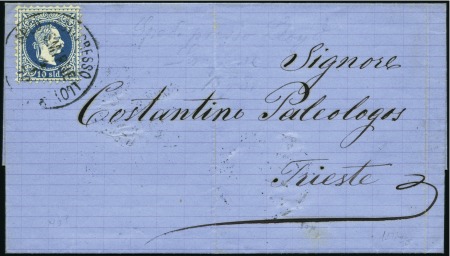 10 sld.
Signore
Costantino Paleologos
Trieste